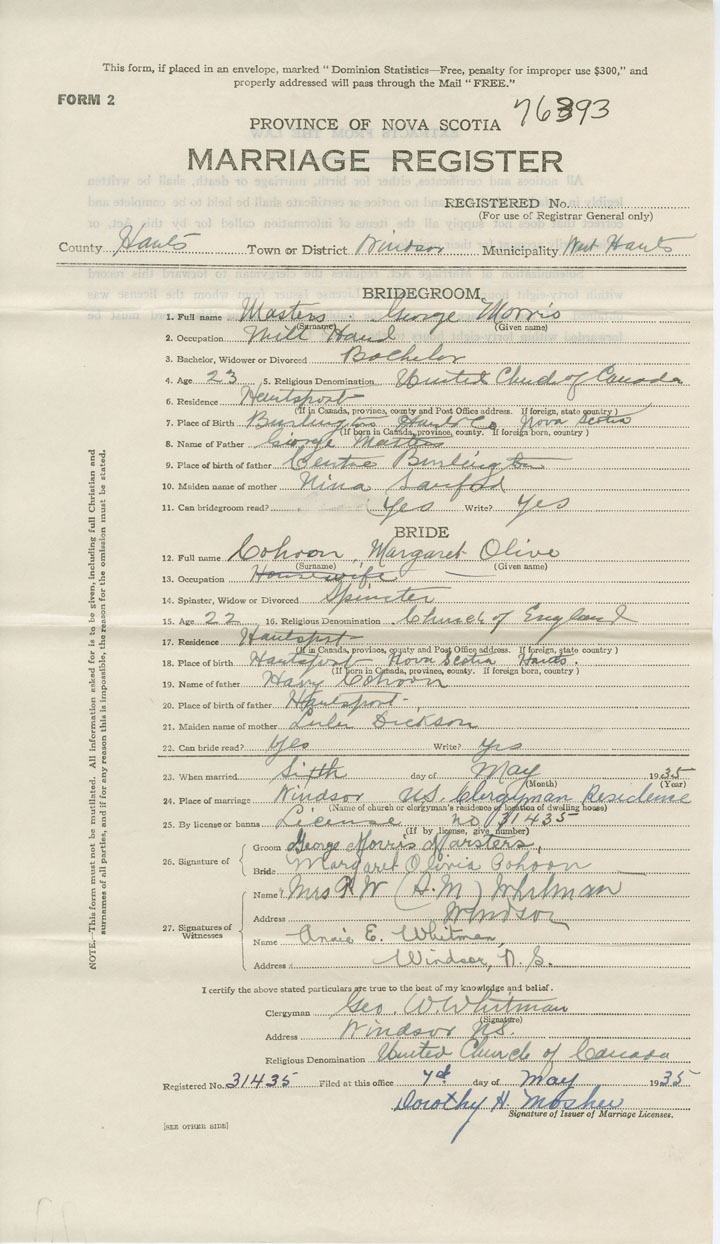 This form, if placed in an envelope, marked "Dominion Statistics—Free, penalty for improper use $300," and
properly addressed will pass through the Mail "FREE."
FORM 2
76393
PROVINCE OF NOVA SCOTIA
MARRIAGE REGISTER
REGISTERED No.
(For use of Registrar General only)
County Hants Town or District Windsor Municipality West Hants
BRIDEGROOM
1. Full name Masters George Morris
(Surname) (Given name)
2. Occupation Mill Hand
3. Bachelor, Widower or Divorced Bachelor
4. Age 23 5. Religious Denomination United Church of Canada
6. Residence Hantsport
(If in Canada, province, county and Post Office address. If foreign, state country)
7. Place of Birth Burlington Hants Co Nova Scotia
(If born in Canada, province, county. If foreign born, country)
8. Name of Father George Masters
9. Place of birth of father Centre Burlington
10. Maiden name of mother Nina Sanford
11. Can bridegroom read? Yes Write? Yes
BRIDE
12. Full name Cohoon, Margaret Olive
(Surname) (Given name)
13. Occupation Housewife
14. Spinster, Widow or Divorced Spinster
15. Age 22 16. Religious Denomination Church of England
17. Residence Hantsport
(If in Canada, province, county and Post Office address. If foreign, state country)
18. Place of birth Hantsport Nova Scotia Hants.
(If born in Canada, province, county. If foreign born, country)
19. Name of father Harry Cohoon
20. Place of birth of father Hantsport
21. Maiden name of mother Dickson
22. Can bride read? Yes Write? Yes
23. When married Sixth day of May 1935
(Month) (Year)
24. Place of marriage Windsor N.S. Clergyman Residence
(Name of church or clergyman's residence or location of dwelling house)
25. By license or banns License no 31435
(If by license, give number)
26. Signature of
Groom George Morris Marsters,
Bride Margaret Olivia Cohoon
27. Signatures of Witnesses
Name Mrs W Whitman
Address Windsor
Name Annie E. Whitman,
Address Windsor, N.S.
I certify the above stated particulars are true to the best of my knowledge and belief.
Clergyman Geo W Whitman
(Signature)
Address Windsor N.S.
Religious Denomination United Church of Canada
Registered No. 31435 Filed at this office 7th day of May 1935
Dorothy H. Mosher
Signature of Issuer of Marriage Licenses.
[SEE OTHER SIDE]
NOTE.—This form must not be mutilated. All information asked for is to be given, including full Christian and
surnames of all parties, and if for any reason this is impossible, the reason for the omission must be stated.